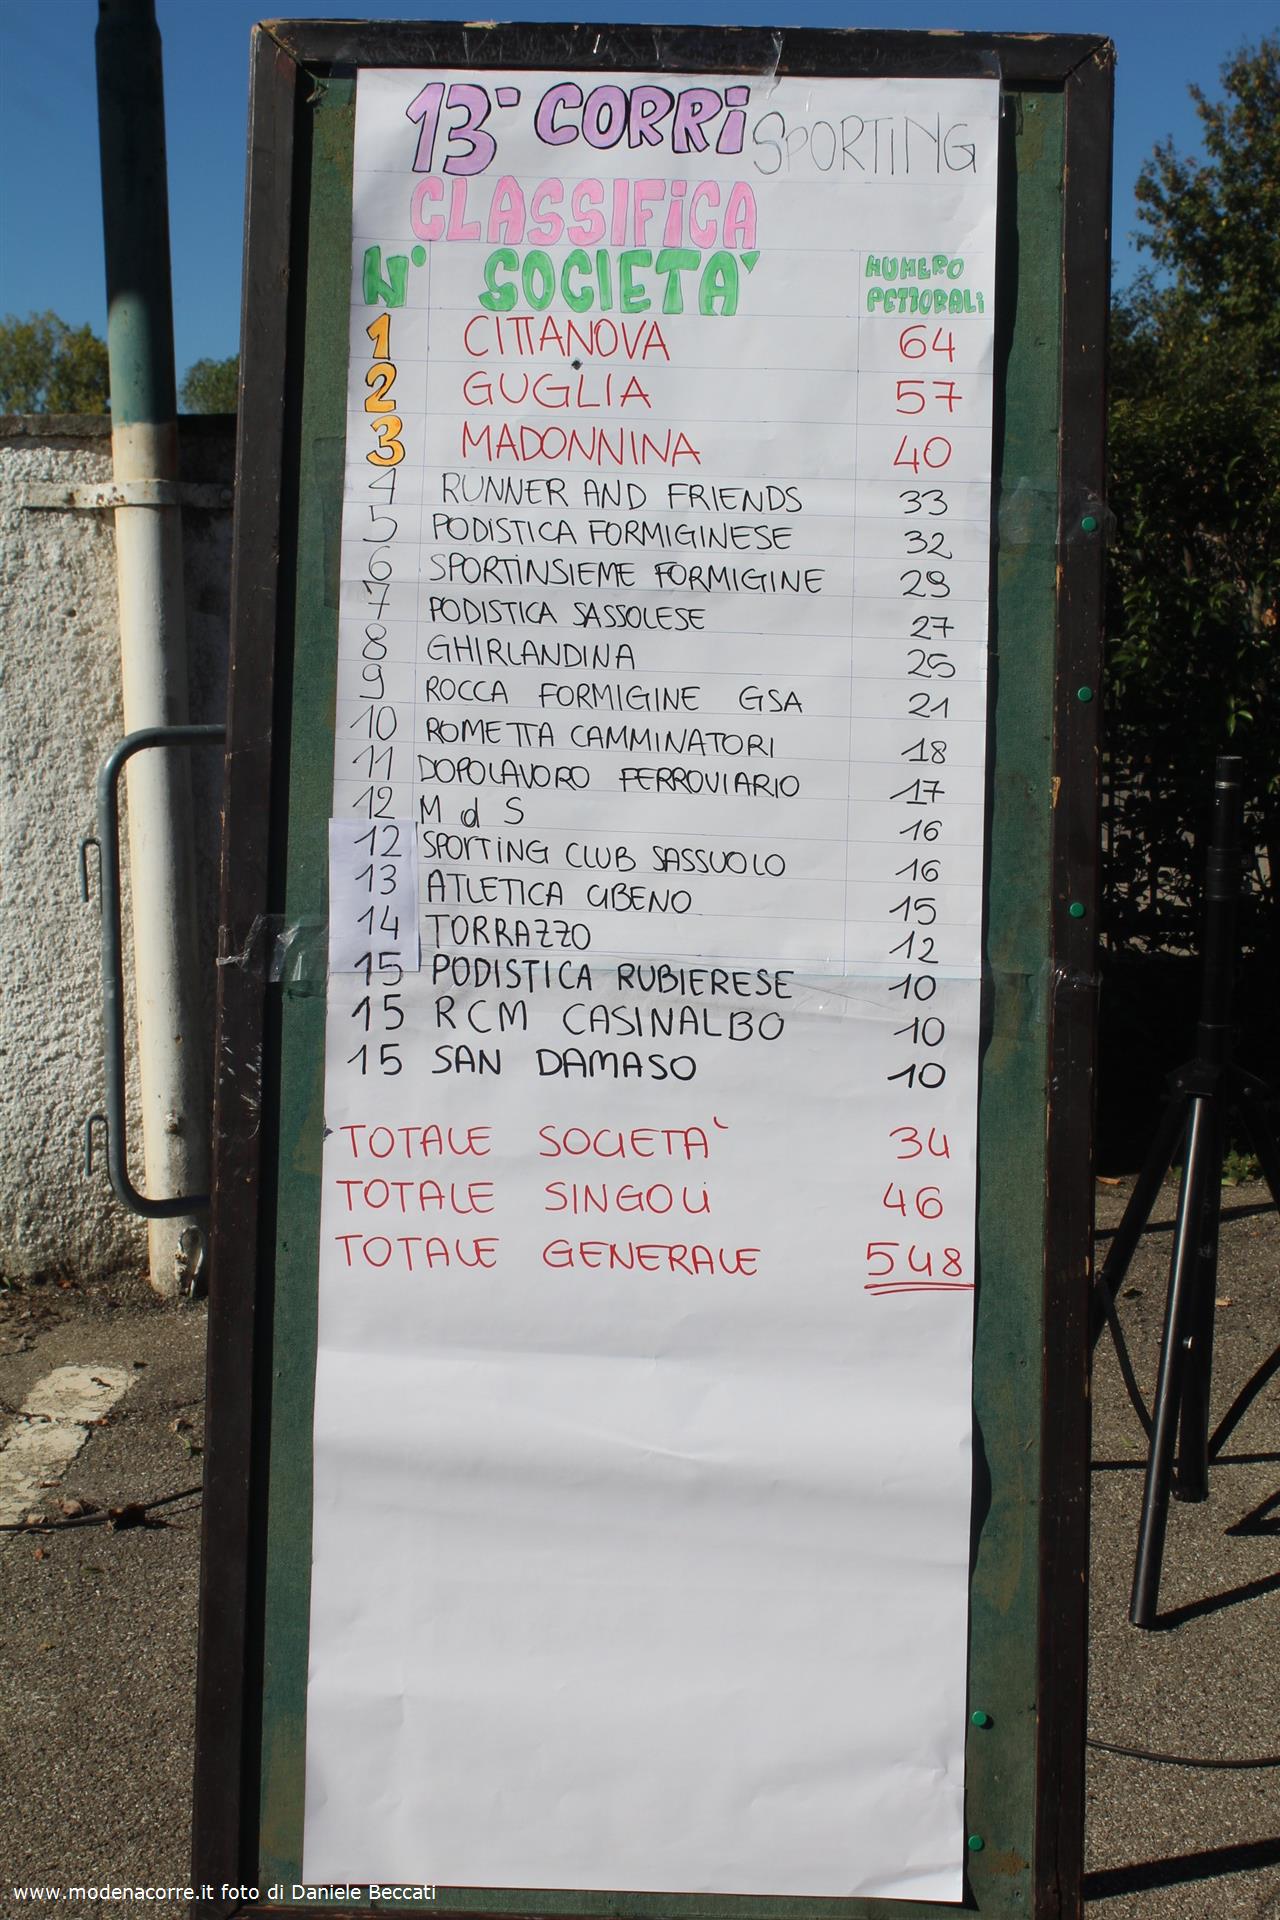 13° CORRi SPORTING
CLASSIFICA
N° SOCIETA' NUMERO PETTORALi
1 CITTANOVA 64
2 GUGLIA 57
3 MADONNINA 40
4 RUNNER AND FRIENDS 33
5 PODISTICA FORMIGINESE 32
6 SPORTINSIEME FORMIGINE 29
7 PODISTICA SASSOLESE 27
8 GHIRLANDINA 25
9 ROCCA FORMIGINE GSA 21
10 ROMETTA CAMMINATORI 18
11 DOPOLAVORO FERROVIARIO 17
12 M d S 16
12 SPORTING CLUB SASSUOLO 16
13 ATLETICA CIBENO 15
14 TORRAZZO 12
15 PODISTICA RUBIERESE 10
15 RCM CASINALBO 10
15 SAN DAMASO 10
TOTALE SOCIETA' 34
TOTALE SINGOLI 46
TOTALE GENERALE 548
www.modenacorre.it foto di Daniele Beccati